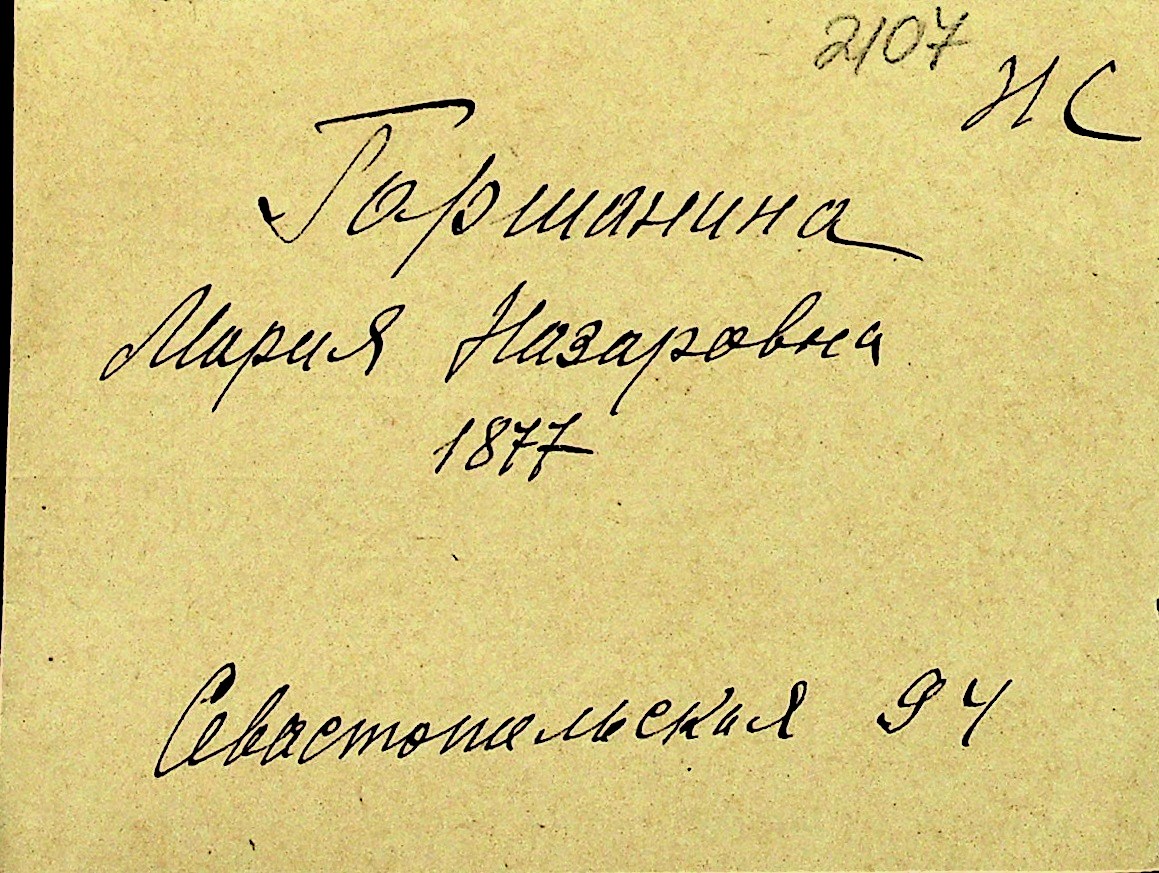 2107
НС
Горшанина
Мария Назаровна
1877
Севастопольская 94